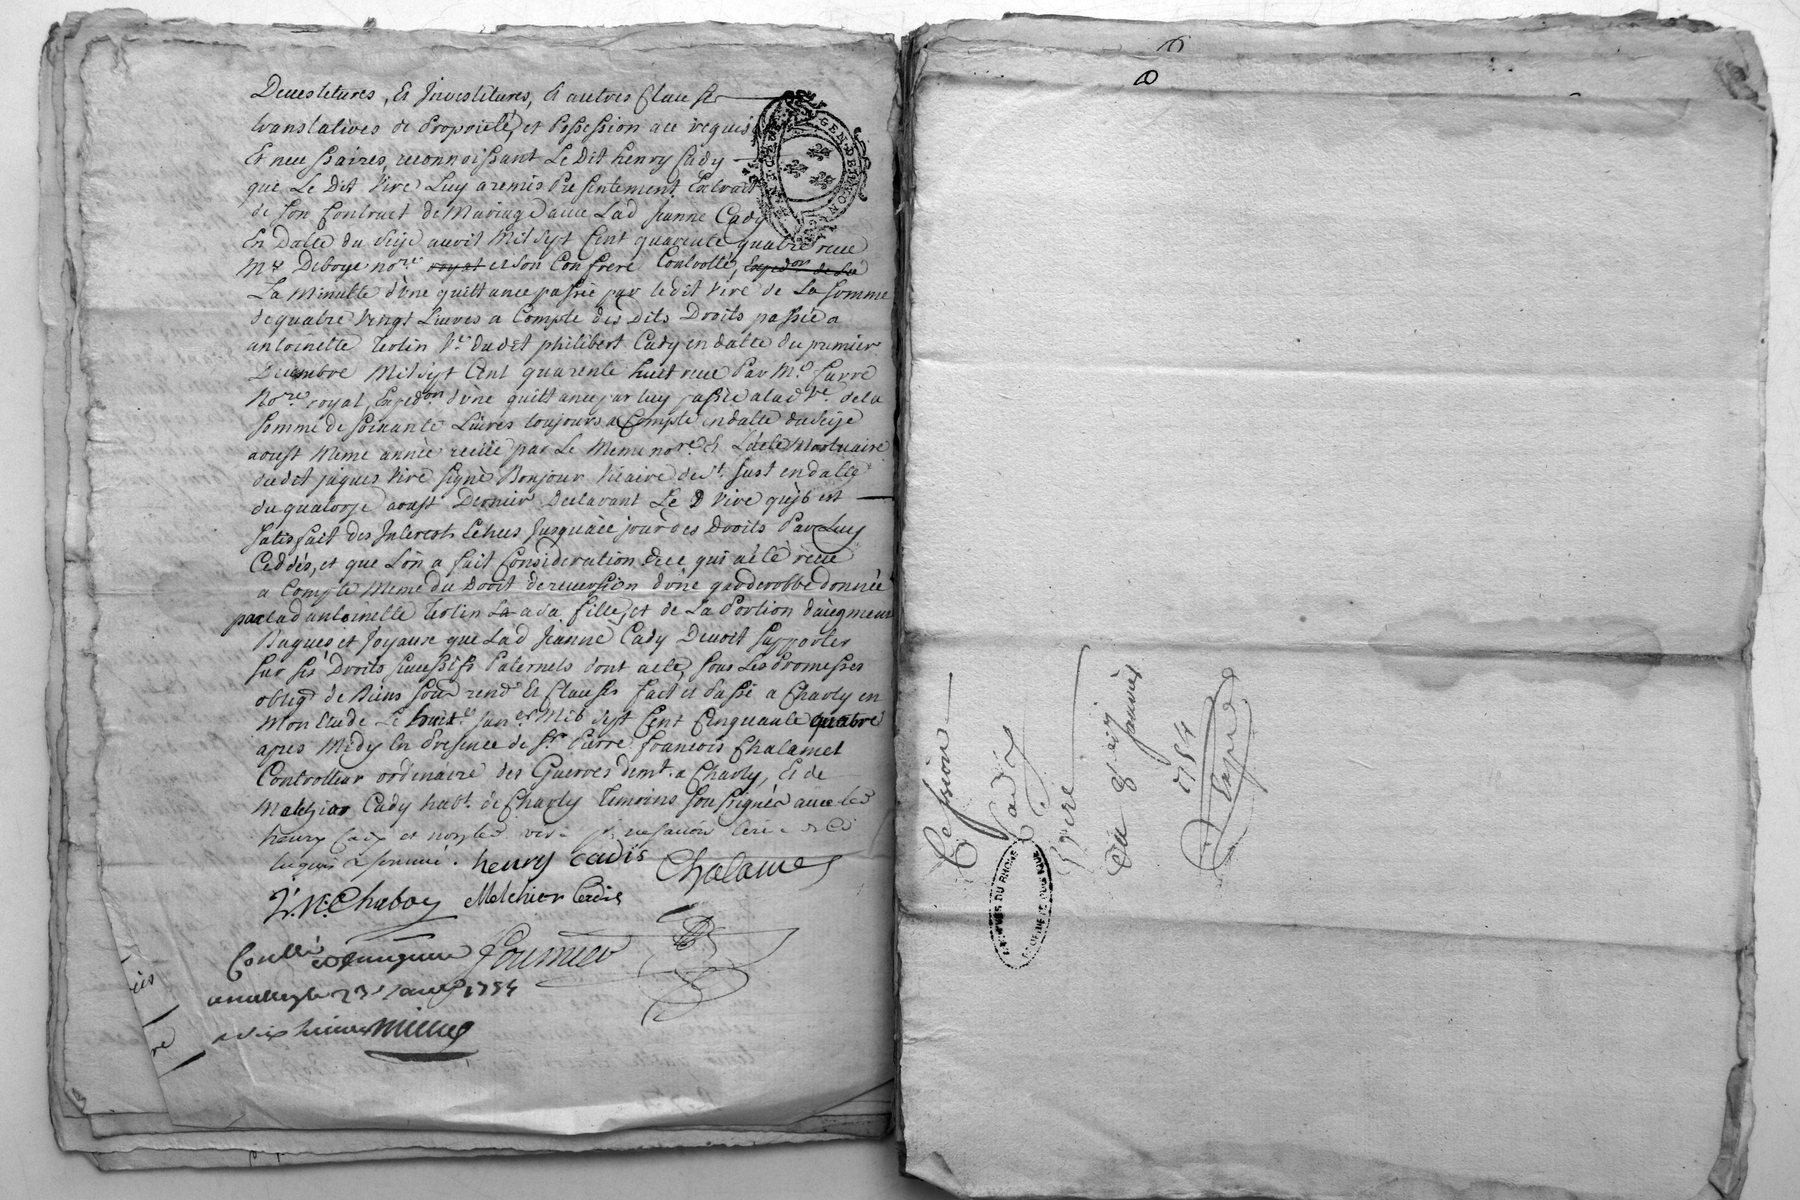 Devestitures, Et Investitures, et autres Clauses
translatives de Propriété, et Possession a ce requis
Et necessaires, reconnoissant Le Dit henry Cady
que Le Dit Viré Luy a remis Presentement Extrait
de son Contract de Mariage avec Lad Jeanne Cady
En Datte du seize avril Mil sept Cent quarente quatre receu
Me Deboye nore royal et son Confrere Controllé, Expedon de La
La Minutte d'une quittance passée par ledit Viré de La somme
de quatre vingt Livres a Compte des Dits Droits passée a
antoinette Terlin Ve dudit philibert Cady en datte du premier
Decembre Mil sept Cent quarente huit receu Par Me farre
Nore royal, Expedon d'une quittance par luy passée a la d Ve de la
somme de soixante Livres toujours a Compte en datte du seize
aoust Meme année reçüe par Le Meme nore Et L'acte Mortuaire
dudit jaques Viré signé Bonjour Vicaire de St. Just en datte
du quatorze aoust Dernier Declarant Le D Viré qu'il est
satisfait des Interests Echeus Jusqua ce jour des Droits Par Luy
Ceddés, et que L'on a fait Consideration de ce qui a été receu
a Compte Meme du Droit de reversion d'une garderobbe donnée
par lad antoinette Terlin La a sa fille, et de La Portion d'augment
Bagues et Joyaux que Lad Jeanne Cady Devoit supporter
sur ses Droits successifs Paternels dont acte, sous Les Promesses
obligd de Biens soud rendt Et Clauses fait et Passé a Charly en
Mon Etude Le huite Janer Mil sept Cent Cinquante quatre
apres Midy En Presence de sr. Pierre francois Chalamet
Controlleur ordinaire des Guerres demt. a Charly, Et de
Melchior Cady habt. de Charly Temoins soussignés avec led
henry Cady et non led viré p. ne savoir écrire de ce
enquis et sommé. henry cadis Chalamet
Chaboy Melchior Cadis
Conllé
Fournier
a 23 janv 1754
Cession
Cady
Viré
du 8e janvier
1754